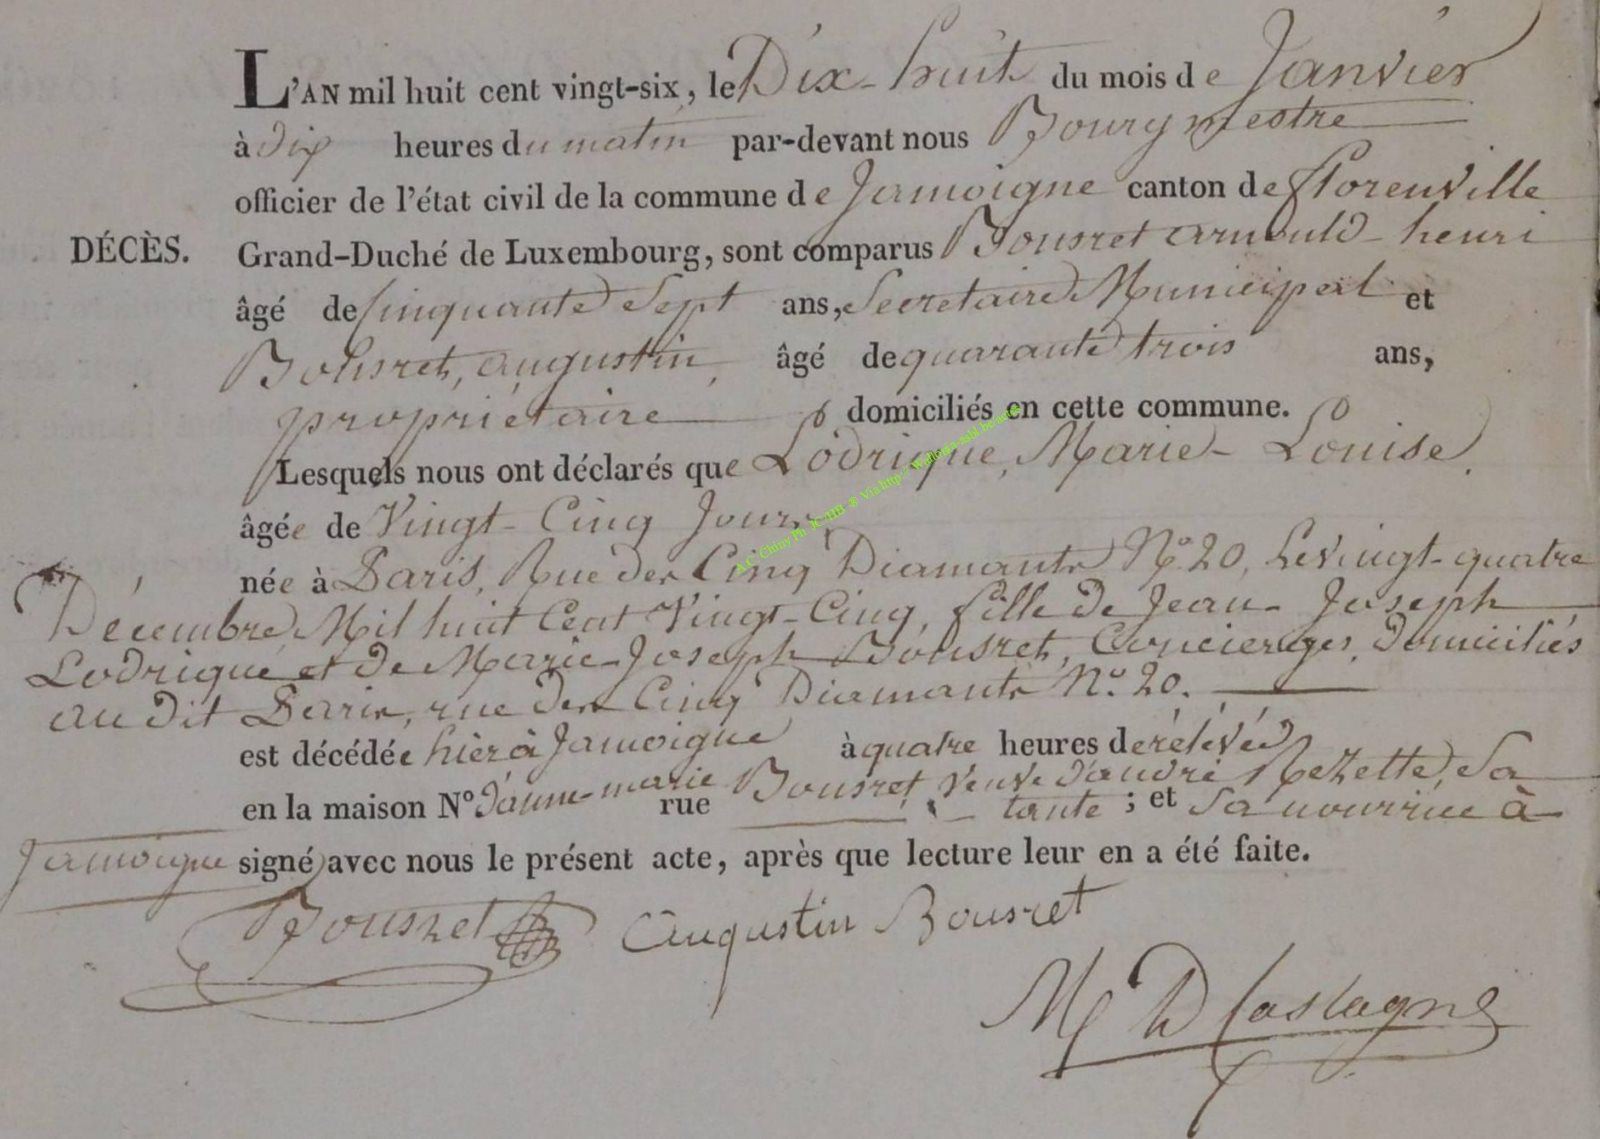 L'AN mil huit cent vingt-six, le Dix-huit du mois de Janvier
à dix heures du matin par-devant nous Bourgmestre
officier de l'état civil de la commune de Jamoigne canton de florenville
DÉCÈS. Grand-Duché de Luxembourg, sont comparus Bousret arnould-henri
âgé de Cinquante Sept ans, Secretaire Municipal et
Bousret, augustin, âgé de quarante trois ans,
propriétaire domiciliés en cette commune.
Lesquels nous ont déclarés que Lodrigue, Marie-Louise,
âgée de Vingt-Cinq Jours,
née à Paris, Rue des Cinq Diamants N.o 20, Le vingt-quatre
Décembre Mil huit Cent Vingt-Cinq, fille de Jean-Joseph
Lodrigue et de Marie-Joseph Bousret, Concierges, domiciliés
au dit Paris, rue des Cinq Diamants N.o 20.
est décédée hièr à Jamoigne à quatre heures de rélévéé
en la maison No d'anne-marie rue Bousret Veuve d'andré Rezette, Sa
tante ; et Sa nourrice à
Jamoigne signé avec nous le présent acte, après que lecture leur en a été faite.
Bousret Augustin Bousret